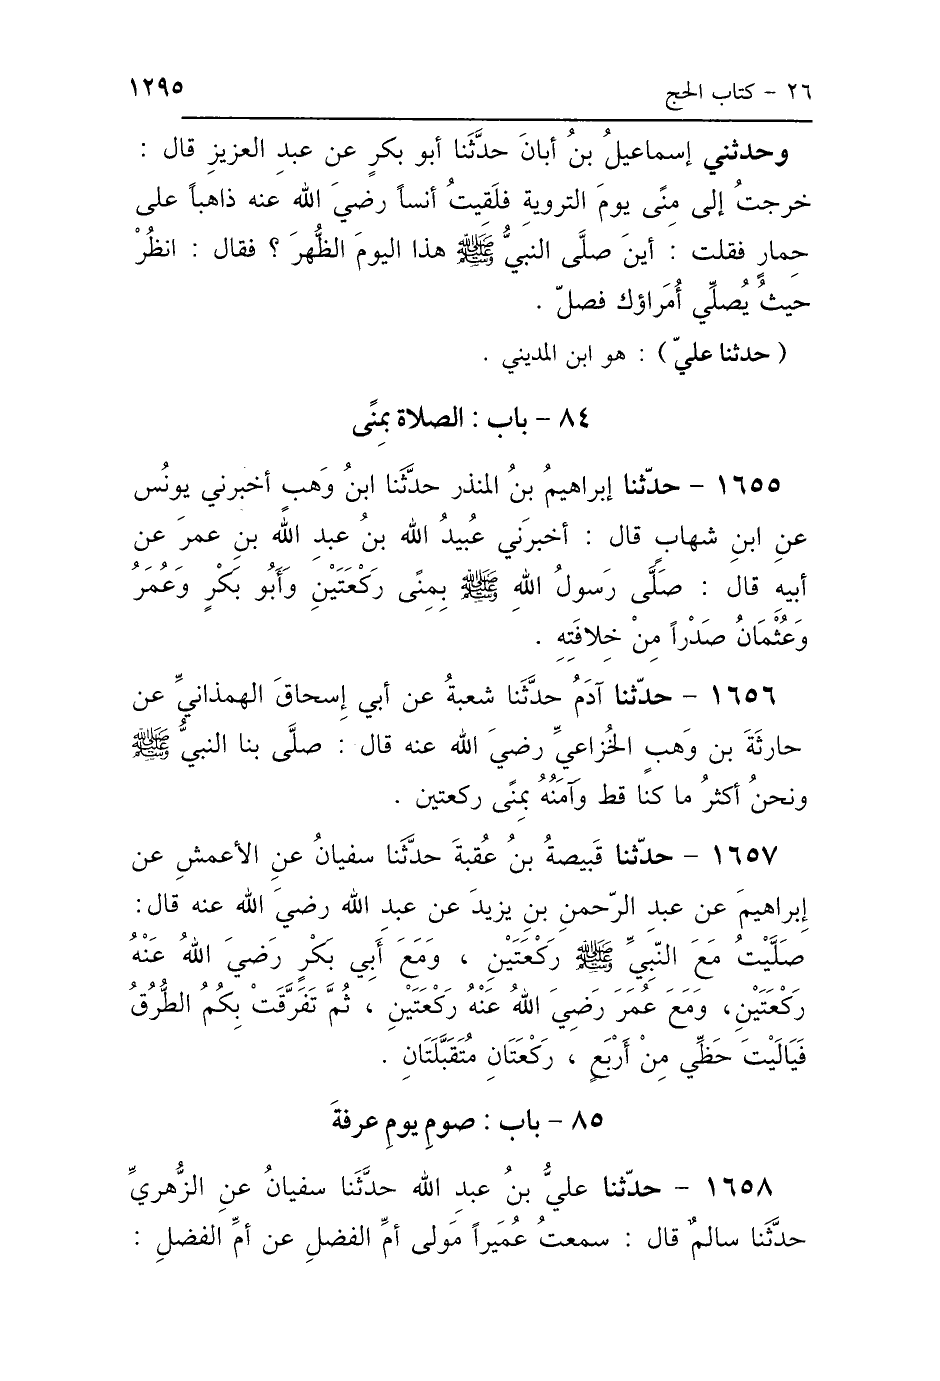 ٢٦ - كتاب الحج ١٢٩٥
وحدثني إسماعيلُ بنُ أبانَ حدَّثَنا أبو بكرٍ عن عبدِ العزيزِ قال :
خرجتُ إلى مِنًى يومَ الترويةِ فلَقِيتُ أنساً رضيَ الله عنه ذاهباً على
حمارٍ فقلت : أينَ صلَّى النبيُّ ﷺ هذا اليومَ الظُّهرَ ؟ فقال : انظُرْ
حيثُ يُصلِّي أُمَراؤك فصلّ .
( حدثنا عليّ ) : هو ابن المديني .
٨٤ - باب : الصلاة بمِنًى
١٦٥٥ - حدّثنا إبراهيمُ بنُ المنذر حدَّثَنا ابنُ وَهبٍ أخبرني يونُس
عنِ ابنِ شهابٍ قال : أخبرَني عُبيدُ الله بنُ عبدِ الله بنِ عمرَ عن
أبيهِ قال : صَلَّى رَسولُ اللهِ ﷺ بِمِنًى رَكْعَتَيْنِ وَأَبُو بَكْرٍ وَعُمَرُ
وَعُثْمَانُ صَدْراً مِنْ خلافَتِهِ .
١٦٥٦ - حدّثنا آدَمُ حدَّثَنا شعبةُ عن أبي إسحاقَ الهمذانيِّ عن
حارثَةَ بن وَهبٍ الخُزاعيِّ رضيَ الله عنه قال : صلَّى بنا النبيُّ ﷺ
ونحنُ أكثرُ ما كنا قط وآمَنُهُ بمِنًى ركعتين .
١٦٥٧ - حدّثنا قَبيصةُ بنُ عُقبةَ حدَّثَنا سفيانُ عنِ الأعمشِ عن
إبراهيمَ عن عبدِ الرّحمنِ بنِ يزيدَ عن عبدِ الله رضيَ الله عنه قال:
صَلَّيْتُ مَعَ النَّبِيِّ ﷺ رَكْعَتَيْنِ ، وَمَعَ أَبِي بَكْرٍ رَضِيَ اللهُ عَنْهُ
رَكْعَتَيْنِ، وَمَعَ عُمَرَ رَضِيَ اللهُ عَنْهُ رَكْعَتَيْنِ ، ثُمَّ تَفَرَّقَتْ بِكُمُ الطُّرُقُ
فَيَالَيْتَ حَظِّي مِنْ أَرْبَعٍ ، رَكْعَتَانِ مُتَقَبَّلَتَانِ .
٨٥ - باب : صومِ يومِ عرفةَ
١٦٥٨ - حدّثنا عليُّ بنُ عبدِ الله حدَّثَنا سفيانُ عنِ الزُّهريِّ
حدَّثَنا سالمٌ قال : سمعتُ عُمَيراً مَولى أمِّ الفضلِ عن أمِّ الفضلِ :